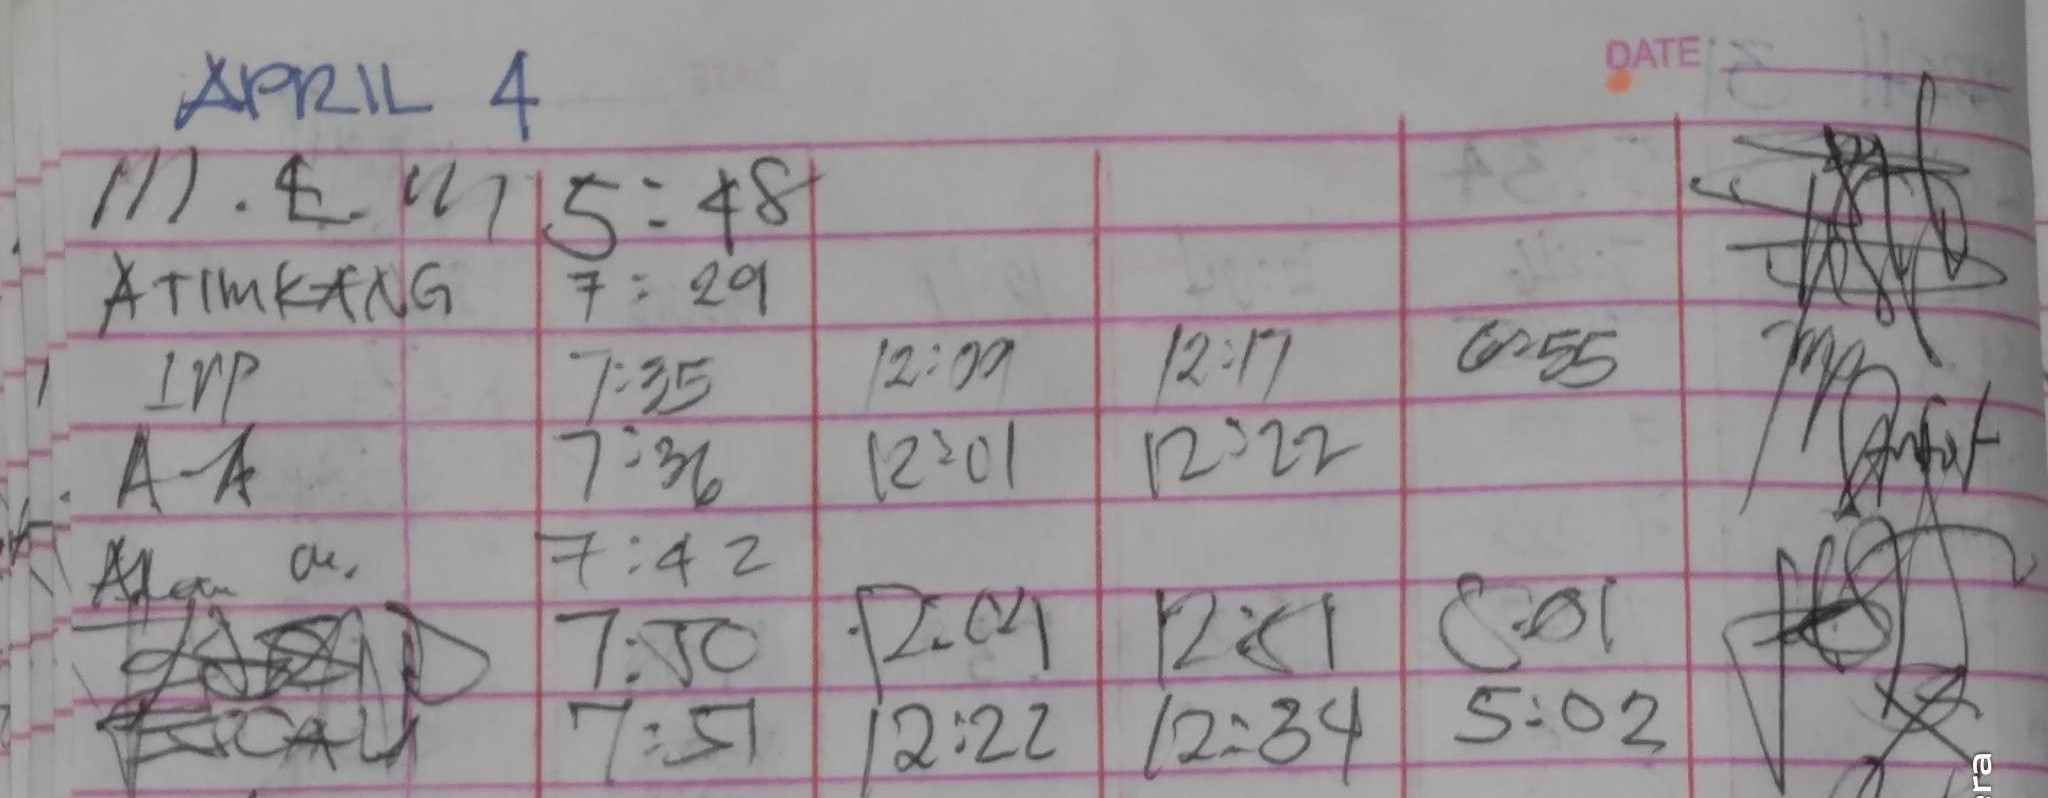 DATE
APRIL 4
M.E.M 5:48
ATIMKANG 7:29
IRP 7:35 12:09 12:17 6:55
A-A 7:36 12:01 12:22
Alan a. 7:42
7:50 12:04 12:51 5:01
7:51 12:22 12:34 5:02